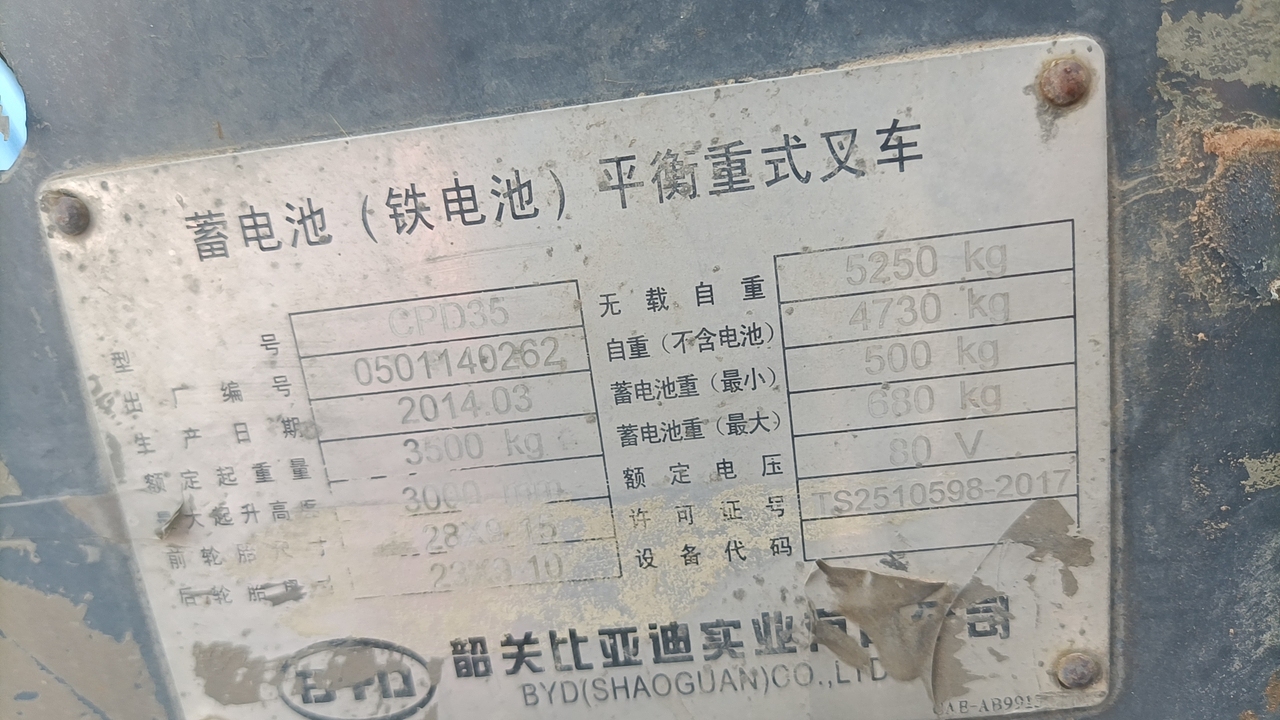 蓄电池（铁电池）平衡重式叉车
型号 CPD35
出厂编号 0501140262
生产日期 2014.03
额定起重量 3500 kg
最大起升高度 3000 mm
前轮胎尺寸 28X9-15
后轮胎尺寸
无载自重 5250 kg
自重（不含电池） 4730 kg
蓄电池重（最小） 500 kg
蓄电池重（最大） 680 kg
额定电压 80 V
许可证号 TS2510598-2017
设备代码
BYD 韶关比亚迪实业有限公司
BYD(SHAOGUAN)CO.,LTD